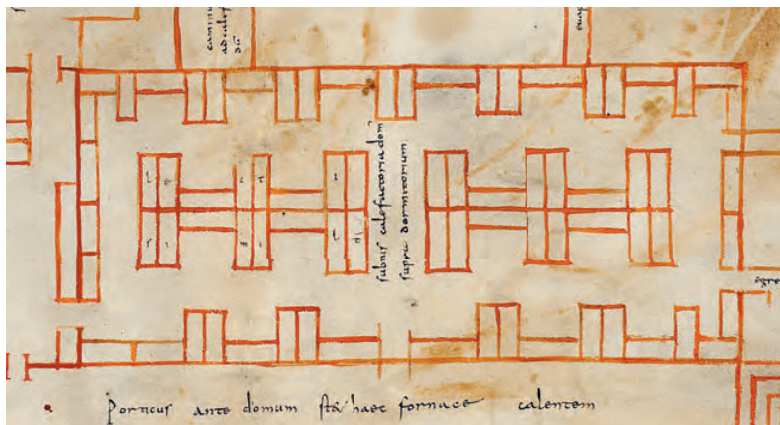 caminus
ad calefa
subtus calefactoria dom
supra dormitorium
Porticus ante domum sta haec fornace calentem